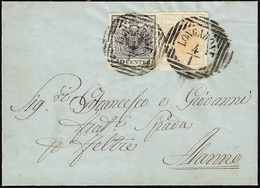 10 CENTES
LONGARONE
4
1
Sig.ri Francesco e Giovanni
Frat.i Spada
Feltre
Alanno